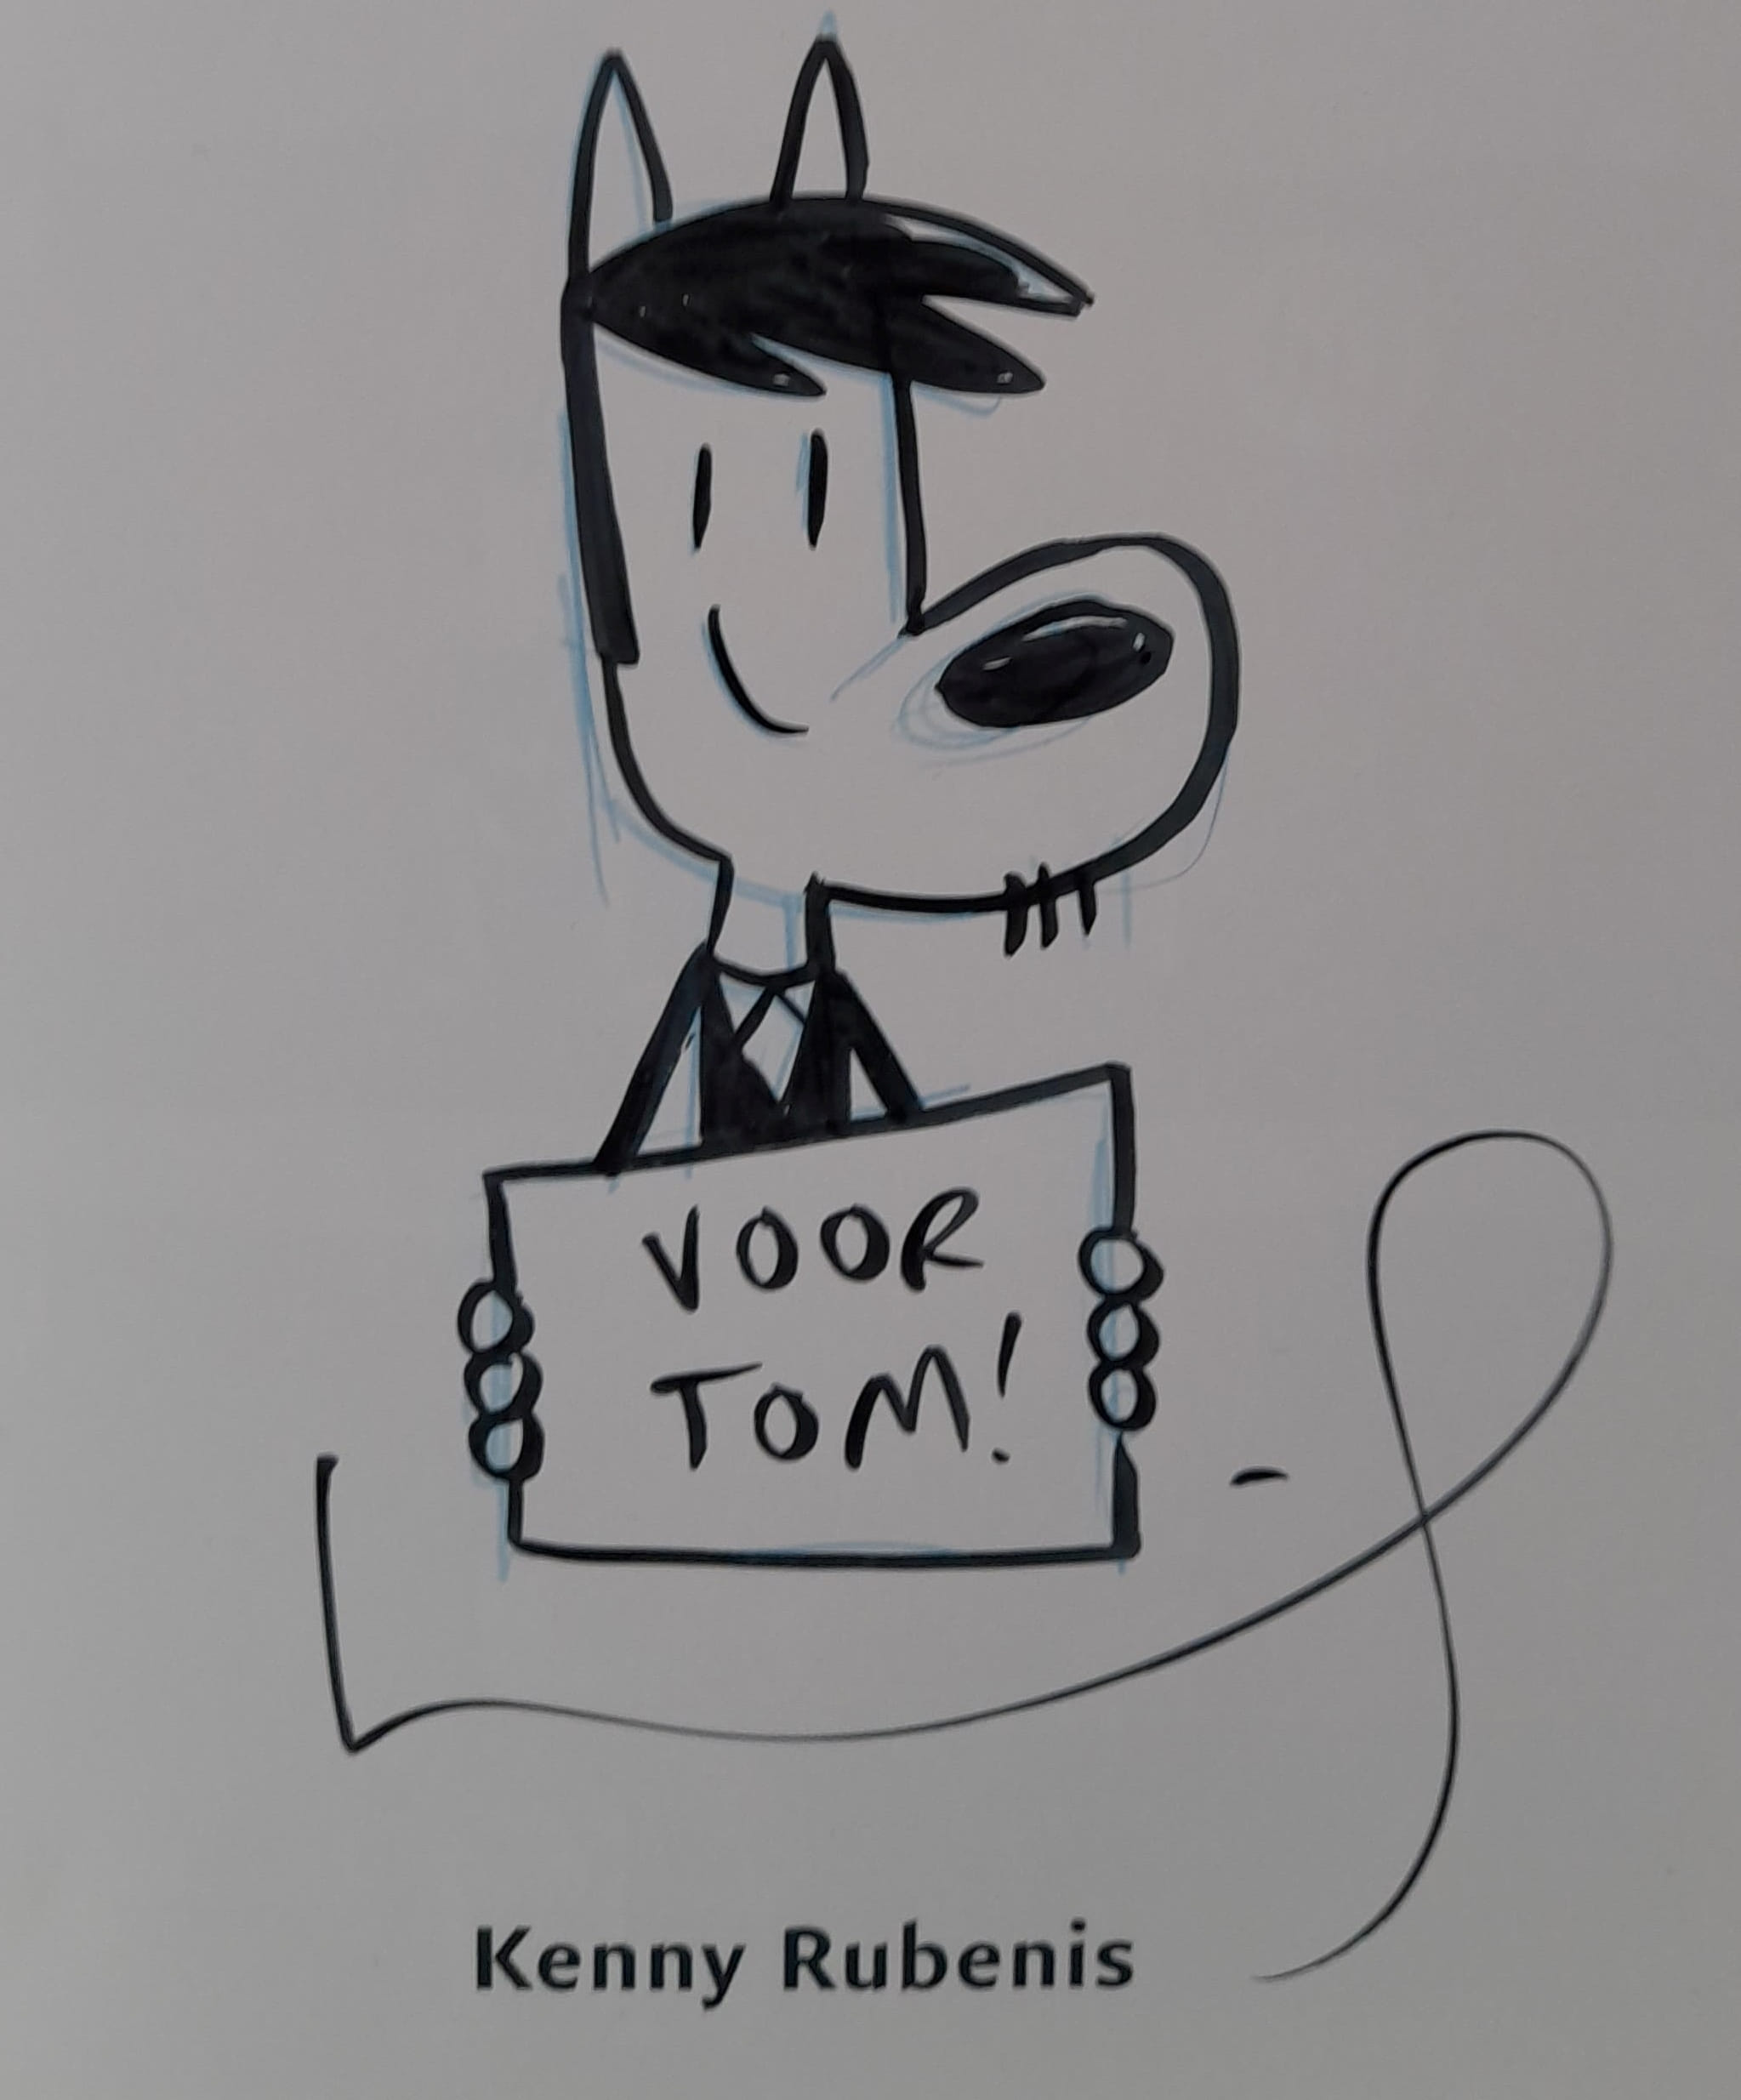 VOOR
TOM!
Kenny Rubenis